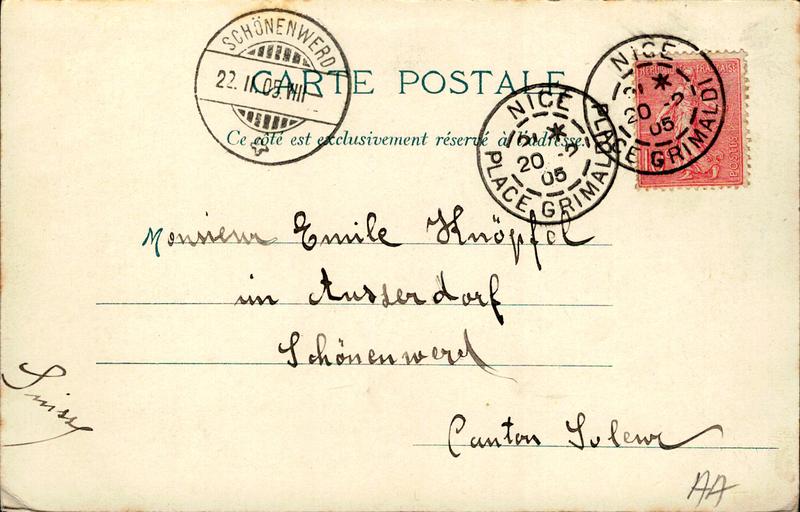 SCHÖNENWERD
22. II. 05. VIII
CARTE POSTALE
Ce côté est exclusivement réservé à l'adresse.
NICE
20 -2
05
PLACE GRIMALDI
NICE
20 -2
05
PLACE GRIMALDI
REPUBLIQUE FRANÇAISE
10
POSTES
Monsieur Emile Knöpfel
im Ausserdorf
Schönenwerd
Suisse
Canton Soleur
AA